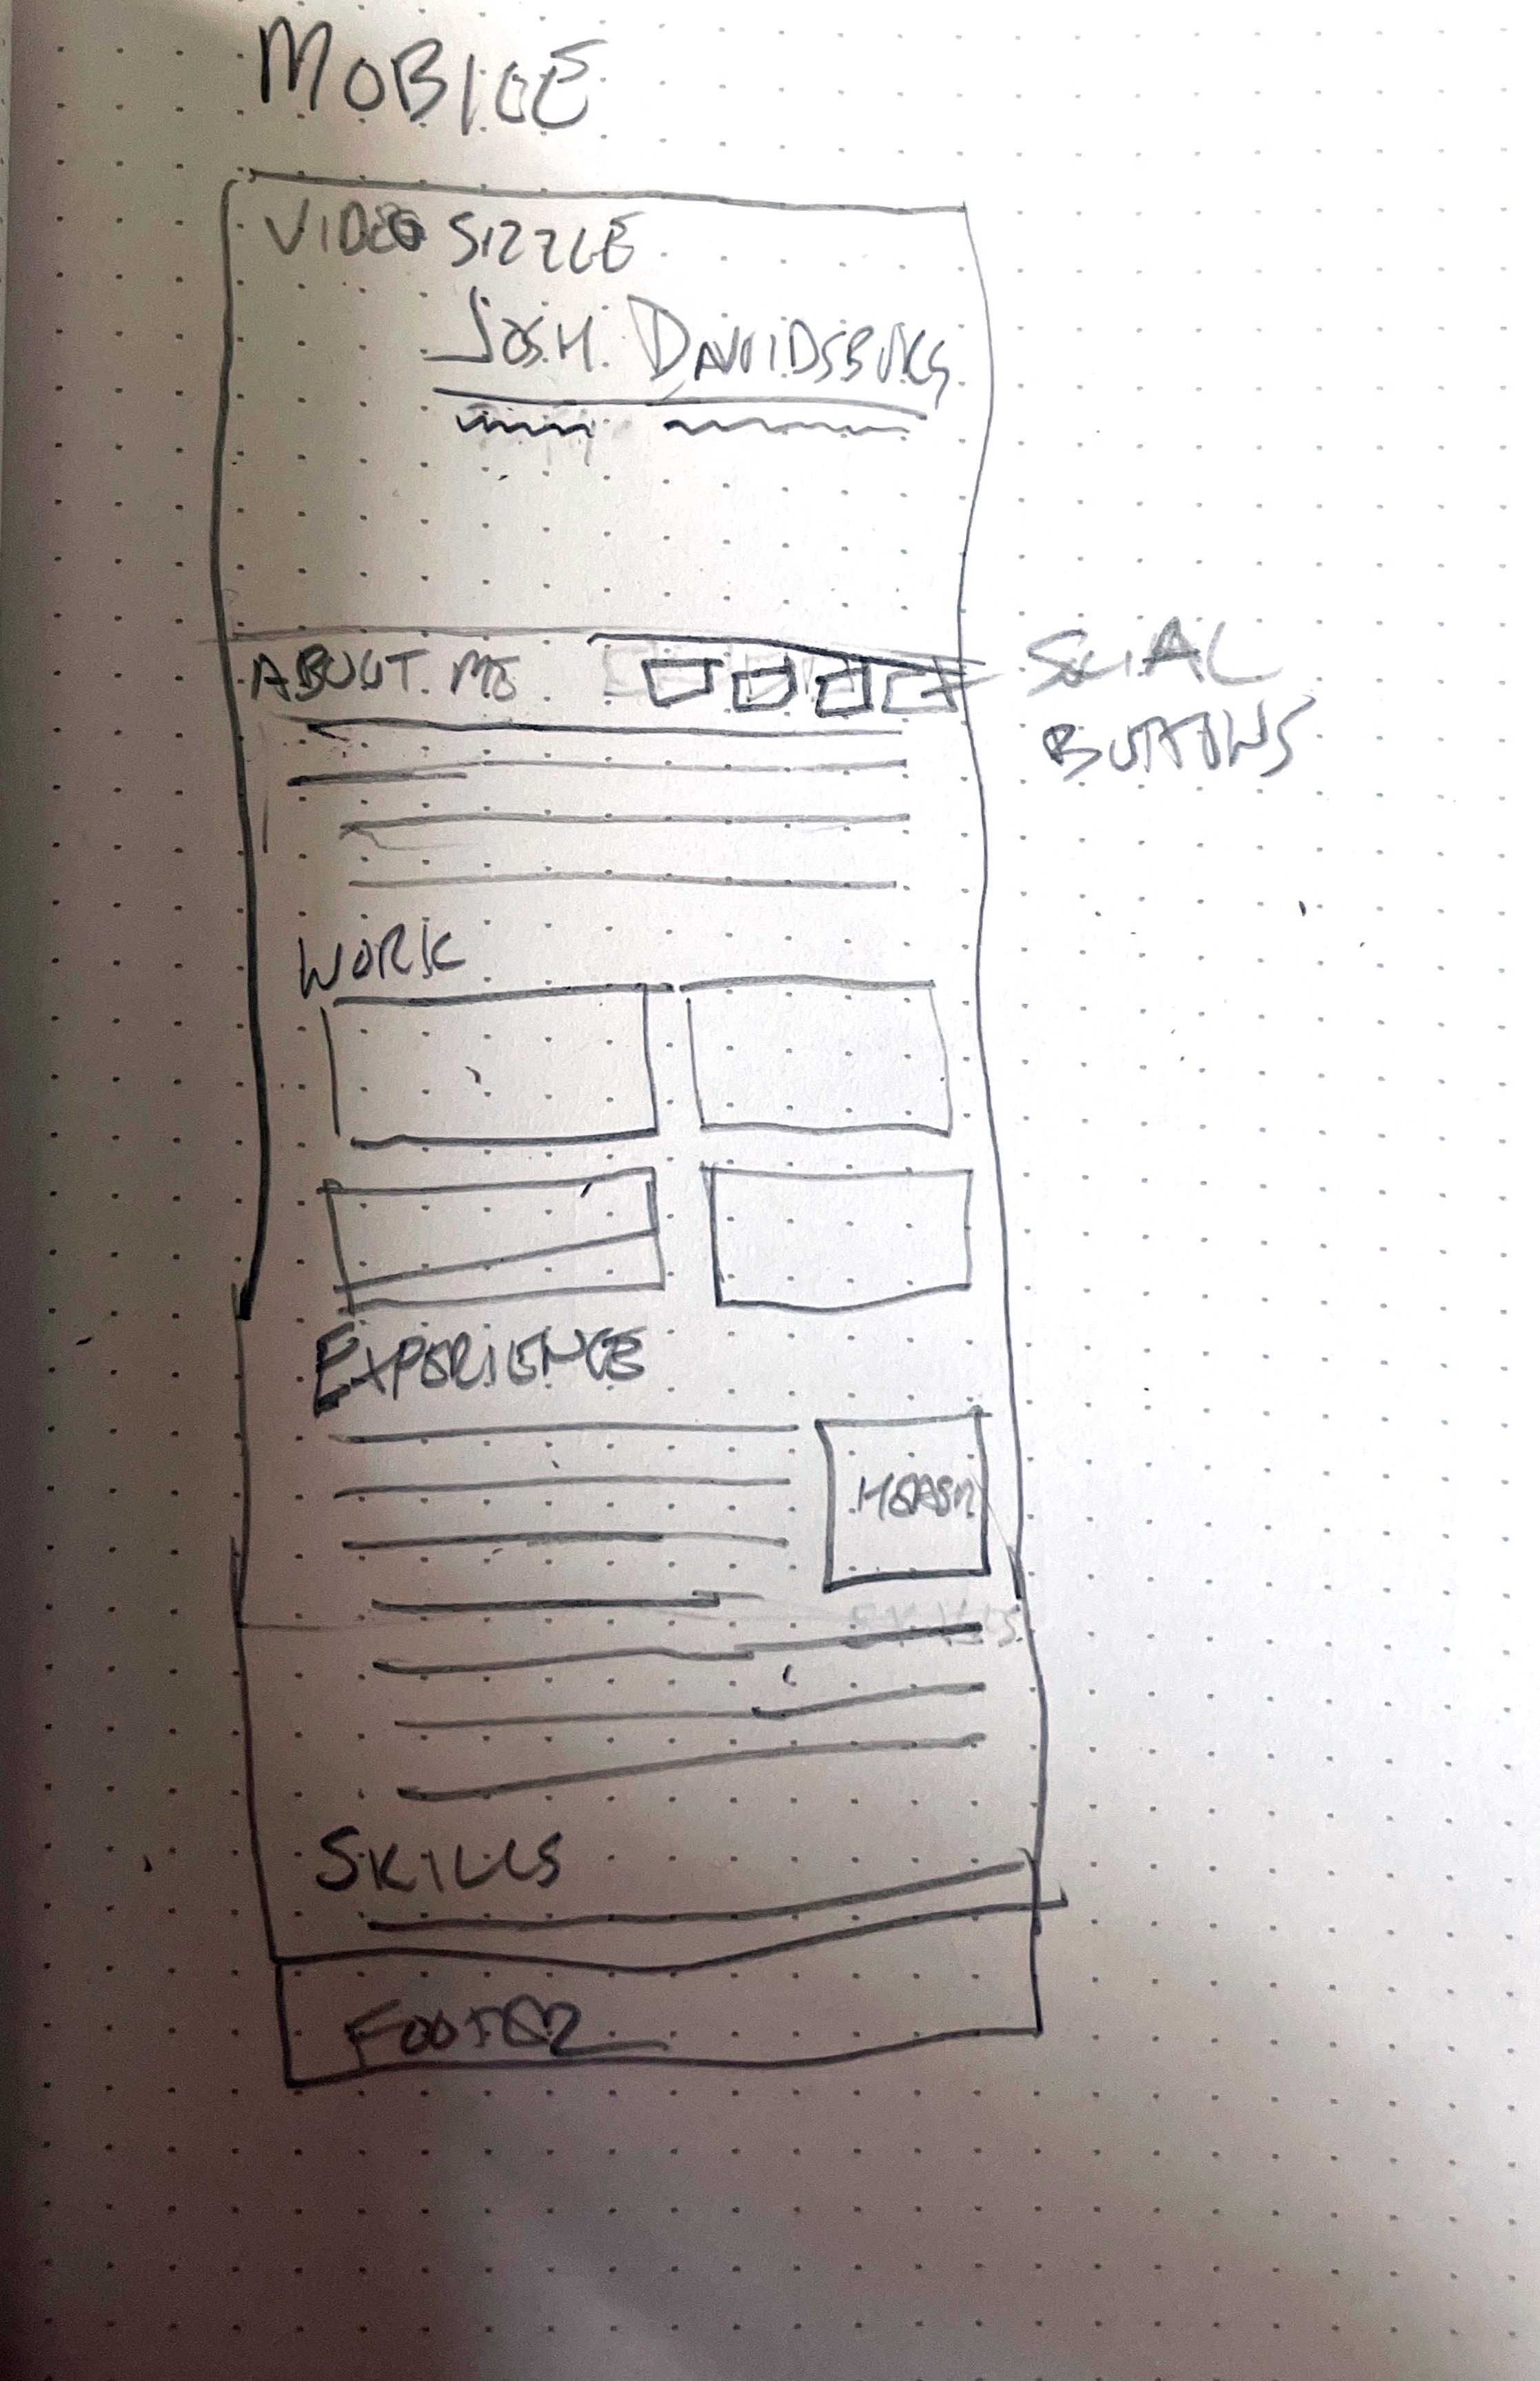 MOBILE
VIDEO SIZZLE
JOSH DAVIDSBURG
ABOUT ME
SOCIAL
BUTTONS
WORK
EXPERIENCE
SKILLS
FOOTER